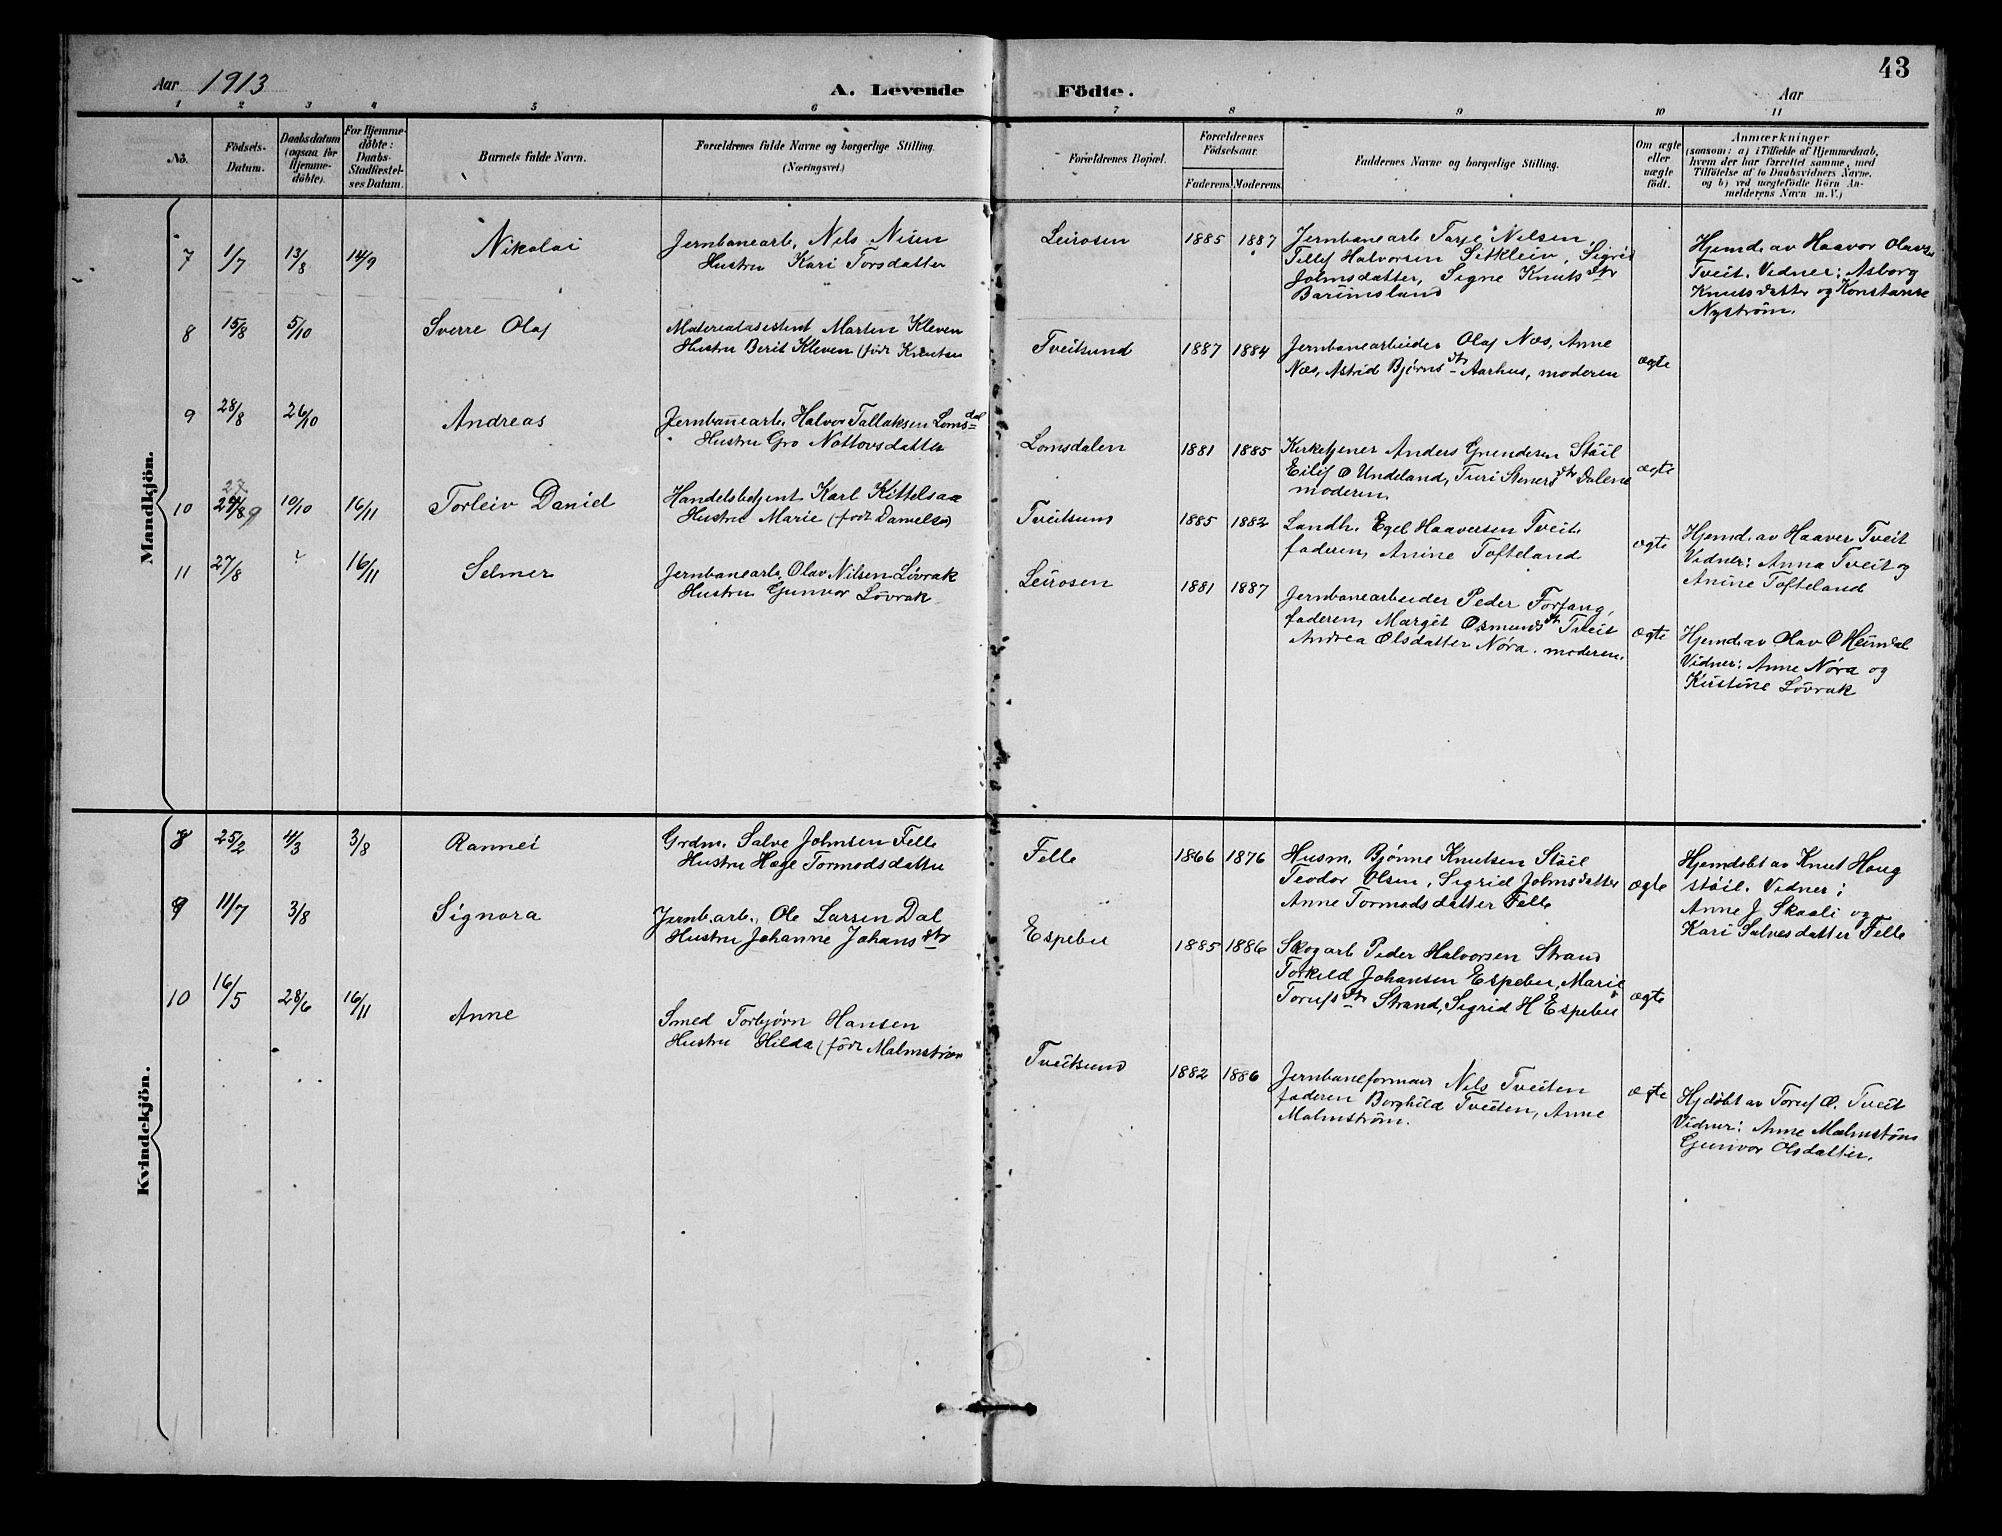 Aar 1913
A. Levende Födte.
43
Aar
1 2 3 4 5 6 7 8 9 10 11
No.
Födsels-Datum.
Daabsdatum (ogsaa for Hjemme-döbte).
For Hjemme-döbte: Daabs-Stadfæstel-ses Datum.
Barnets fulde Navn.
Forældrenes fulde Navne og borgerlige Stilling. (Næringsvei.)
Forældrenes Bopæl.
Forældrenes Födselsaar.
Faderens. Moderens.
Faddernes Navne og borgerlige Stilling.
Om ægte eller uægte födt.
Anmærkninger
(saasom: a) i Tilfælde af Hjemmedaab, hvem der har forrettet samme, med Tilföielse af to Daabsvidners Navne, og b) ved uægtefödte Börn An-melderens Navn m. V.)
Mandkjön.
7 1/7 13/8 14/9 Nikolai
Jernbanearb. Nils Nisen
Hustru Kari Torsdatter
Leirosen 1885 1887
Jernbanearb Tarje Nilsen,
Tellef Halvorsen Sitkleiv, Sigrid
Johnsdatter, Signe Knutsdtr
Barunsland
Hjemd. av Haavor Olavs
Tveit. Vidner: Asborg
Knutsdatter og Konstanse
Nystrøm.
8 15/8 5/10 Sverre Olaf
Materialasistent Marten Kleven
Hustru Berit Kleven (født Knutsen
Tveitsund 1887 1884
Jernbanearbeider Olaf Næs, Anne
Næs, Astrid Bjørnsdtr Aarhus, moderen
ægte
9 28/8 26/10 Andreas
Jernbanearb. Halvor Tallaksen Lomsdal
Hustru Gro Nottovsdatter
Lomsdalen 1881 1885
Kirketjener Anders Gundesen Stöil
Eilif O Undeland, Turi Stenersdtr Dalene
moderen
ægte
10 27 24/8 9 10/10 16/11 Torleiv Daniel
Handelsbetjent Karl Kittelsaa
Hustru Marie (født Danielsen)
Tveitsund 1885 1882
Landh. Egel Haaversen Tveit
faderen, Anine Tofteland
ægte
Hjemd. av Haaver Tveit
Vidner: Anna Tveit og
Anine Tofteland
11 27/8 ? 16/11 Selmer
Jernbanearb. Olav Nilsen Lövrak
Hustru Gunvor Lövrak
Leirosen 1881 1887
Jernbanearbeider Peder Forfang,
faderen, Margit Osmundsdtr Tveit
Andrea Olsdatter Nöra, moderen.
ægte
Hjemd. av Olav O Heimdal
Vidner: Anne Nöra og
Kirstine Lövrak
Kvindekjön.
8 25/2 4/3 3/8 Rannei
Grdm. Salve Johnsen Felle
Hustru Hæge Tormodsdatter
Felle 1866 1876
Husm. Bjönne Knutsen Stöil
Teodor Olsen, Sigrid Johnsdatter
Anne Tormodsdatter Felle
ægte
Hjemdöbt av Knut Haug
stöil. Vidner:
Anne J Skaali og
Kari Salvesdatter Felle
9 11/7 3/8 Signora
Jernb.arb. Ole Larsen Dal
Hustru Johanne Johansdtr
Espebu 1885 1886
Skogarb Peder Halvorsen Strand
Torkild Johansen Espebu, Marie
Torufsdtr Strand, Sigrid H Espebu
ægte
10 16/5 28/6 16/11 Anne
Smed Torbjörn Hansen
Hustru Hilda (född Malmström
Tveitsund 1882 1886
Jernbaneforman Nils Tveiten
faderen Borghild Tveiten, Anne
Malmström.
ægte
Hjdöbt av Toruf O. Tveit
Vidner: Anne Malmström
Gunvor Olsdatter.